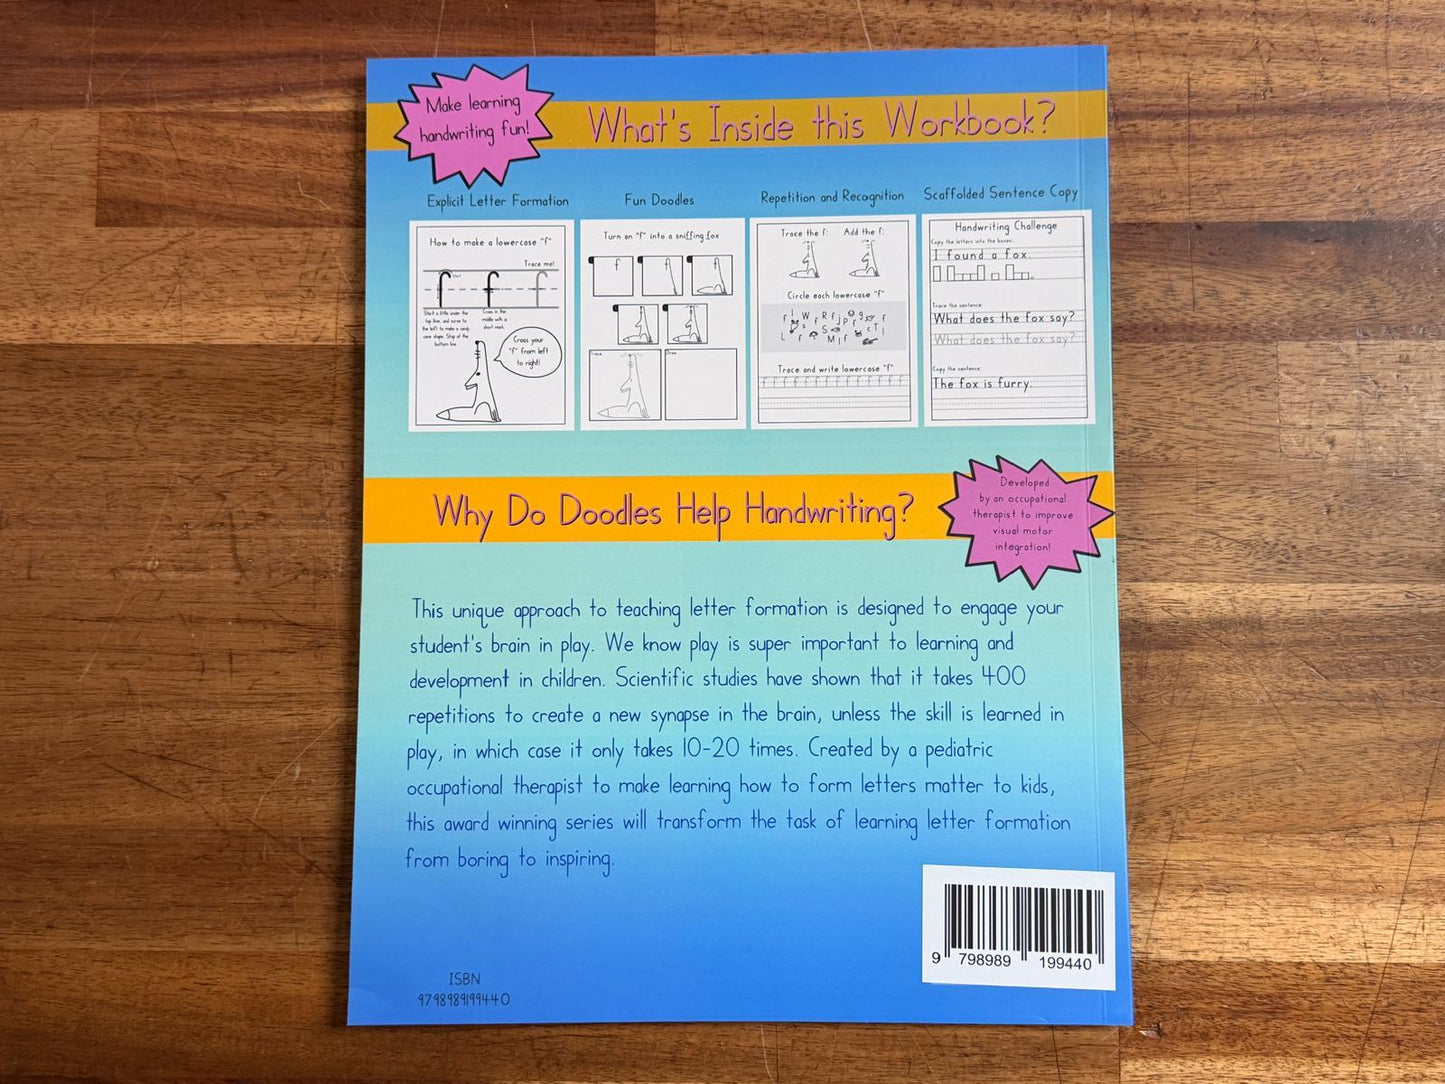 Make learning
handwriting fun!
What's Inside this Workbook?
Explicit Letter Formation
Fun Doodles
Repetition and Recognition
Scaffolded Sentence Copy
How to make a lowercase "f"
Trace me!
Start
Start a little under the
top line, and curve to
the left to make a candy
cane shape. Stop at the
bottom line.
Cross in the
middle with a
short mast.
Cross your
"f" from left
to right!
Turn an "f" into a sniffing fox
Trace
Draw
Trace the f:
Add the f:
Circle each lowercase "f"
Trace and write lowercase "f"
f f f f f f f f f f f f f f
Handwriting Challenge
Copy the letters into the boxes:
I found a fox.
Trace the sentence:
What does the fox say?
What does the fox say?
Copy the sentence:
The fox is furry.
Why Do Doodles Help Handwriting?
Developed
by an occupational
therapist to improve
visual motor
integration!
This unique approach to teaching letter formation is designed to engage your
student's brain in play. We know play is super important to learning and
development in children. Scientific studies have shown that it takes 400
repetitions to create a new synapse in the brain, unless the skill is learned in
play, in which case it only takes 10-20 times. Created by a pediatric
occupational therapist to make learning how to form letters matter to kids,
this award winning series will transform the task of learning letter formation
from boring to inspiring.
ISBN
9798989199440
9 798989 199440